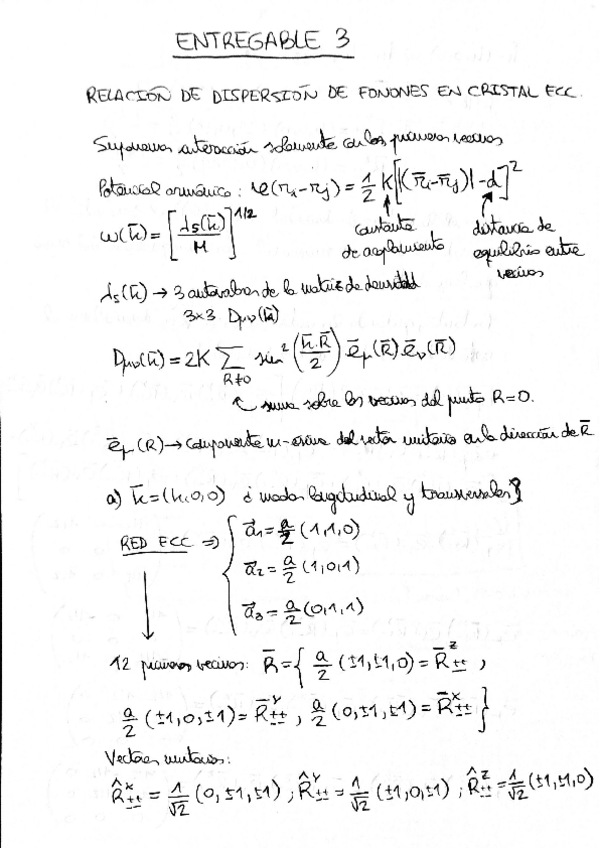 ENTREGABLE 3
RELACIÓN DE DISPERSIÓN DE FONONES EN CRISTAL FCC.
Suponemos interacción solamente con los primeros vecinos
Potencial armónico: φ(r_i-r_j) = 1/2 K[|(r̄_i-r̄_j)|-d]²
ω(k̄) = [λs(k̄)/M]^1/2
constante de acoplamiento
distancia de equilibrio entre vecinos
λs(k̄) → 3 autovalores de la matriz de densidad
3×3 Dμν(k̄)
Dμν(k̄) = 2K Σ_{R≠0} sin²(k̄·R̄/2) ē_μ(R̄) ē_ν(R̄)
suma sobre los vecinos del punto R=0.
ē_μ(R) → componente μ-ésima del vector unitario en la dirección de R̄
a) k̄ = (k,0,0) ¿modos longitudinal y transversales?
RED FCC ⇒ { a⃗1 = a/2 (1,1,0)
a⃗2 = a/2 (1,0,1)
a⃗3 = a/2 (0,1,1)
12 primeros vecinos: R̄ = { a/2 (±1,±1,0) = R̄^Z_±± ,
a/2 (±1,0,±1) = R̄^Y_±± , a/2 (0,±1,±1) = R̄^X_±± }
Vectores unitarios:
R̂^X_±± = 1/√2 (0,±1,±1) ; R̂^Y_±± = 1/√2 (±1,0,±1) ; R̂^Z_±± = 1/√2 (±1,±1,0)